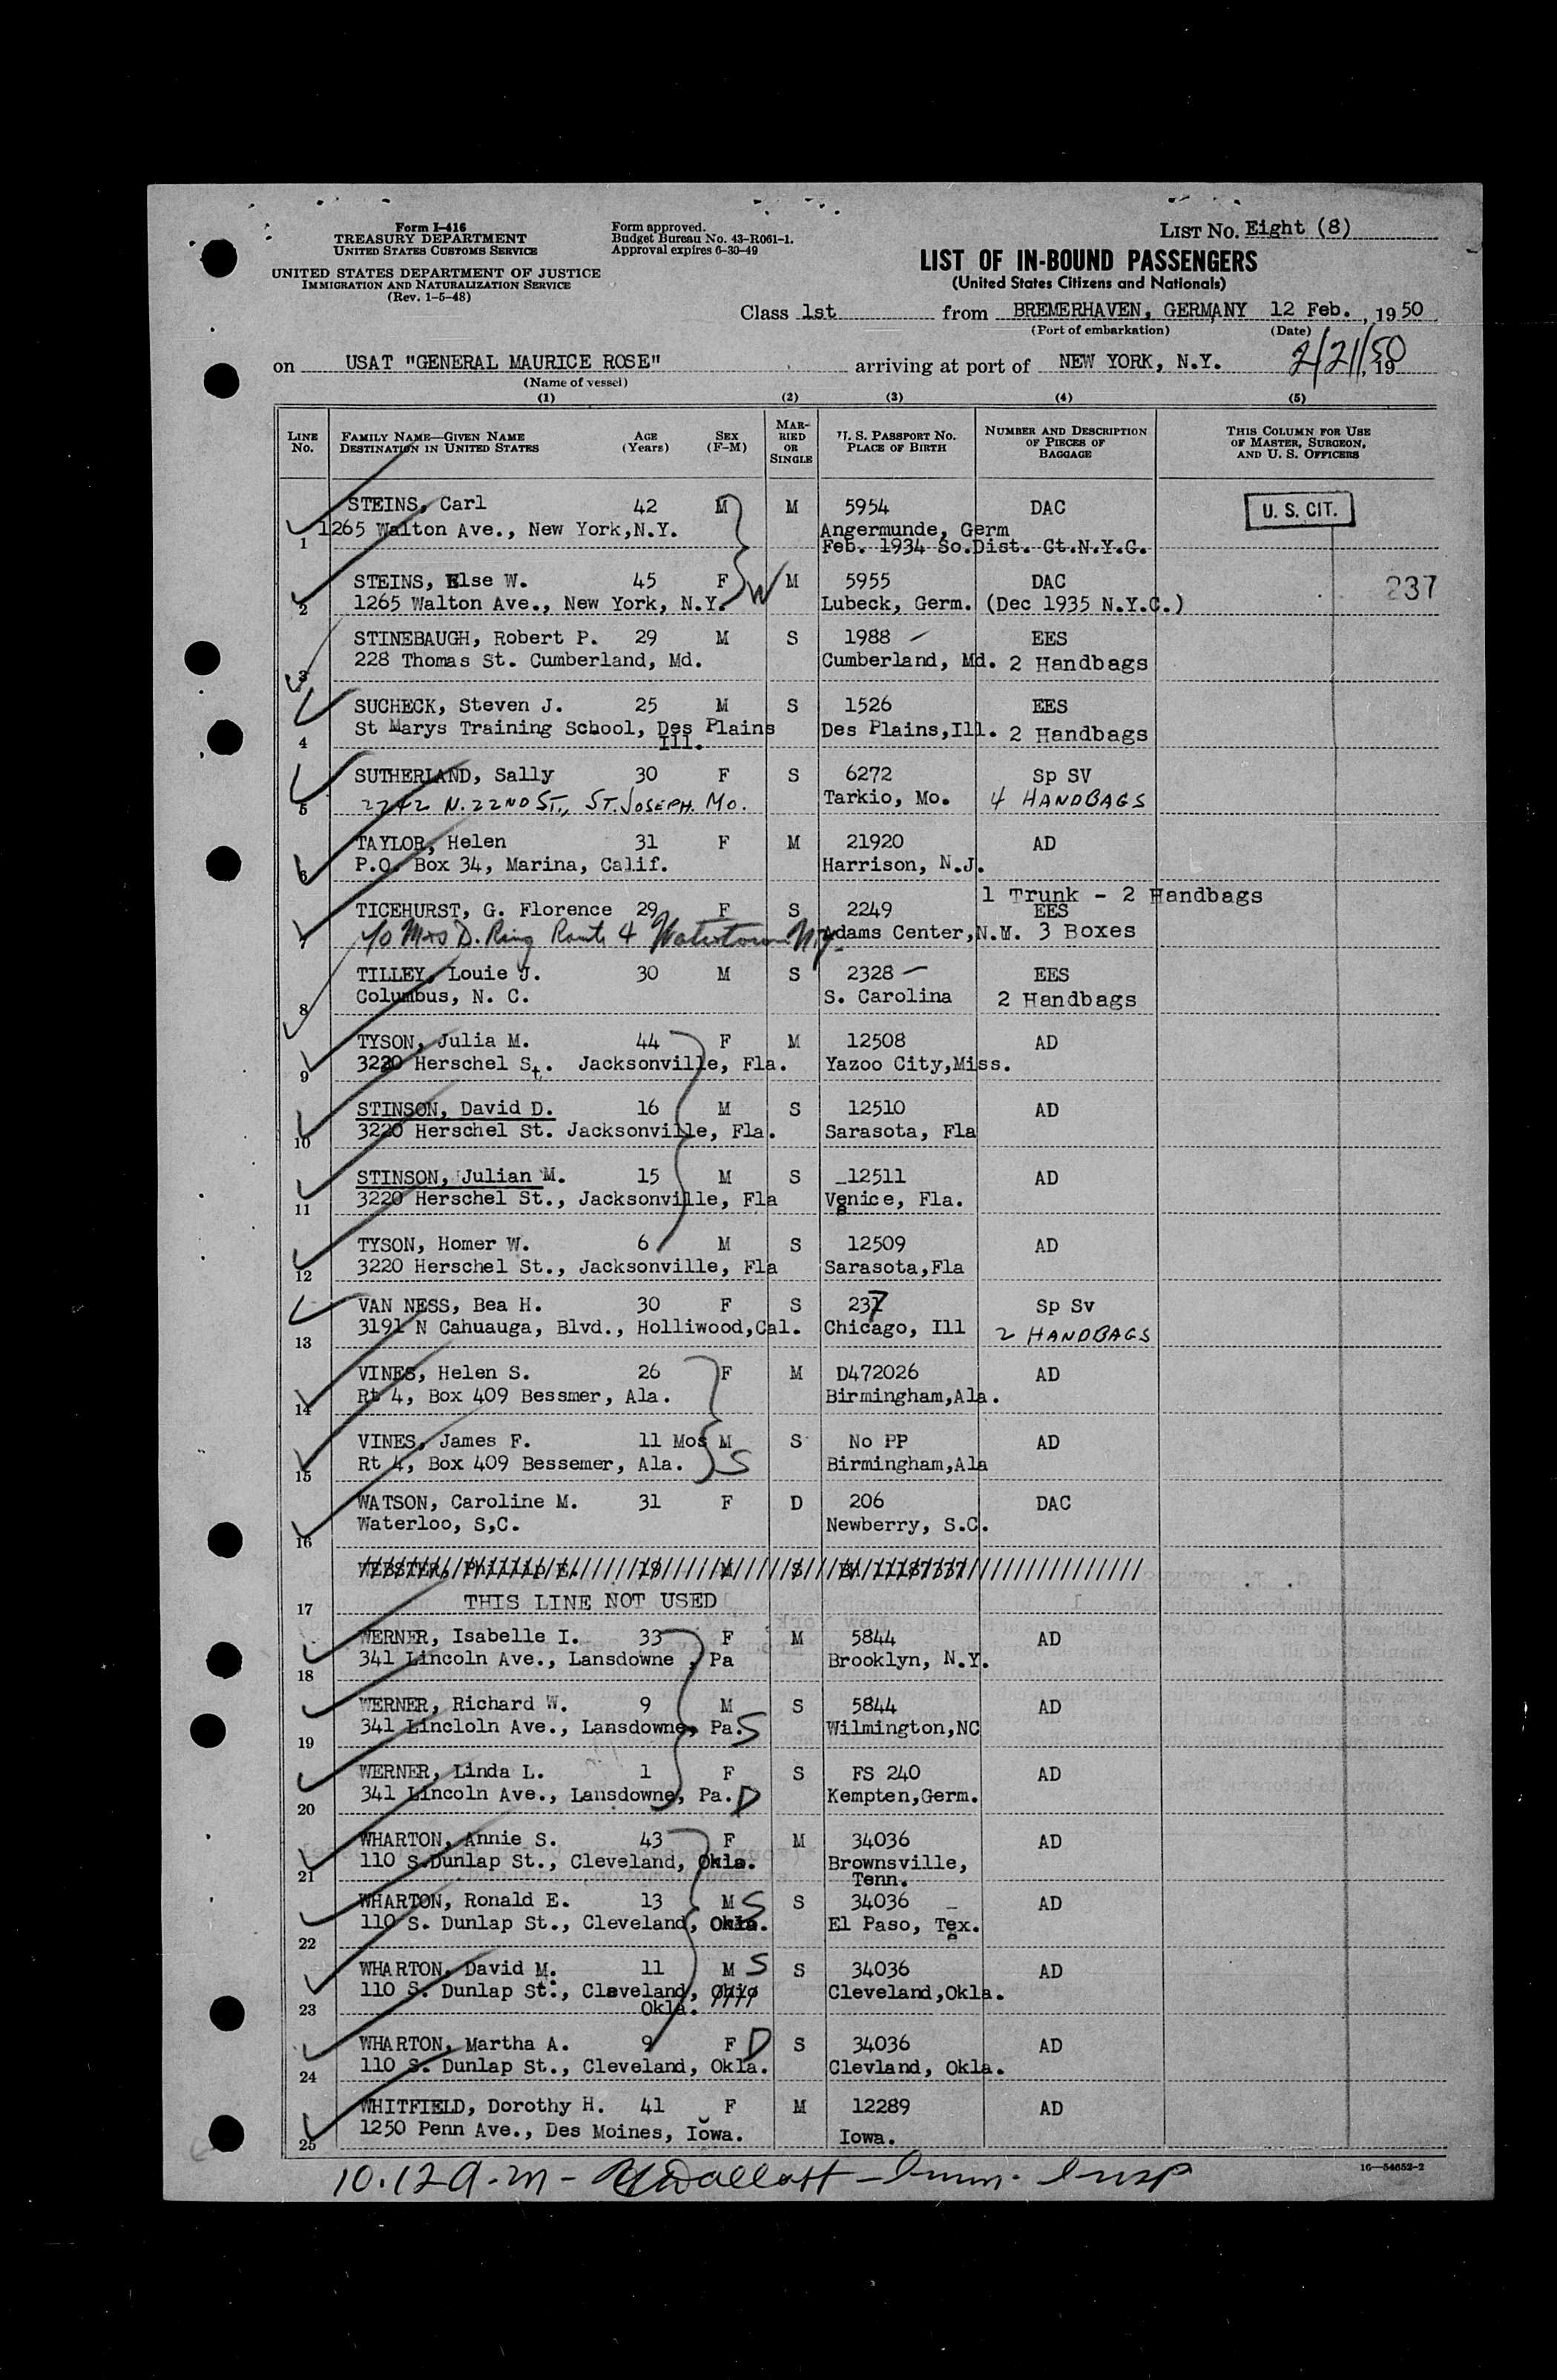 Form I-416
TREASURY DEPARTMENT
UNITED STATES CUSTOMS SERVICE
UNITED STATES DEPARTMENT OF JUSTICE
IMMIGRATION AND NATURALIZATION SERVICE
(Rev. 1-5-48)
Form approved.
Budget Bureau No. 43-R061-1.
Approval expires 6-30-49
LIST NO. Eight (8)
LIST OF IN-BOUND PASSENGERS
(United States Citizens and Nationals)
Class 1st from BREMERHAVEN, GERMANY 12 Feb., 1950
(Port of embarkation) (Date)
on USAT "GENERAL MAURICE ROSE" arriving at port of NEW YORK, N.Y. 2/21/50, 19
(Name of vessel)
(1) (2) (3) (4) (5)
LINE NO. FAMILY NAME—GIVEN NAME DESTINATION IN UNITED STATES AGE (Years) SEX (F-M) MARRIED OR SINGLE U. S. PASSPORT NO. PLACE OF BIRTH NUMBER AND DESCRIPTION OF PIECES OF BAGGAGE THIS COLUMN FOR USE OF MASTER, SURGEON, AND U. S. OFFICERS
STEINS, Carl 42 M M 5954 DAC U. S. CIT.
1265 Walton Ave., New York,N.Y. Angermunde, Germ
1 Feb. 1934 So.Dist. Ct.N.Y.C.
STEINS, Else W. 45 F W M 5955 DAC 237
2 1265 Walton Ave., New York, N.Y. Lubeck, Germ. (Dec 1935 N.Y.C.)
STINEBAUGH, Robert P. 29 M S 1988 EES
228 Thomas St. Cumberland, Md. Cumberland, Md. 2 Handbags
3
SUCHECK, Steven J. 25 M S 1526 EES
St Marys Training School, Des Plains Des Plains,Ill. 2 Handbags
4 Ill.
SUTHERLAND, Sally 30 F S 6272 Sp SV
5 2242 N. 22ND ST., ST. JOSEPH. MO. Tarkio, Mo. 4 HANDBAGS
TAYLOR, Helen 31 F M 21920 AD
6 P.O. Box 34, Marina, Calif. Harrison, N.J.
1 Trunk - 2 Handbags
TICEHURST, G. Florence 29 F S 2249 EES
7 c/o Mrs D. Ring Route 4 Watertown N.Y. Adams Center,N.Y. 3 Boxes
TILLEY, Louie J. 30 M S 2328 EES
8 Columbus, N. C. S. Carolina 2 Handbags
TYSON, Julia M. 44 F M 12508 AD
9 3220 Herschel St. Jacksonville, Fla. Yazoo City,Miss.
STINSON, David D. 16 M S 12510 AD
10 3220 Herschel St. Jacksonville, Fla. Sarasota, Fla
STINSON, Julian M. 15 M S 12511 AD
11 3220 Herschel St., Jacksonville, Fla Venice, Fla.
TYSON, Homer W. 6 M S 12509 AD
12 3220 Herschel St., Jacksonville, Fla Sarasota,Fla
VAN NESS, Bea H. 30 F S 237 Sp Sv
13 3191 N Cahuauga, Blvd., Holliwood,Cal. Chicago, Ill 2 HANDBAGS
VINES, Helen S. 26 F M D472026 AD
14 Rt 4, Box 409 Bessmer, Ala. Birmingham,Ala.
VINES, James F. 11 Mos M S No PP AD
15 Rt 4, Box 409 Bessemer, Ala. S Birmingham,Ala
WATSON, Caroline M. 31 F D 206 DAC
16 Waterloo, S,C. Newberry, S.C.
WEBSTER, Phillip E. 19 M S
17 THIS LINE NOT USED
WERNER, Isabelle I. 33 F M 5844 AD
18 341 Lincoln Ave., Lansdowne , Pa Brooklyn, N.Y.
WERNER, Richard W. 9 M S 5844 AD
19 341 Lincloln Ave., Lansdowne, Pa. S Wilmington,NC
WERNER, Linda L. 1 F S FS 240 AD
20 341 Lincoln Ave., Lansdowne, Pa. D Kempten,Germ.
WHARTON, Annie S. 43 F M 34036 AD
21 110 S.Dunlap St., Cleveland, Okla. Brownsville,
Tenn.
WHARTON, Ronald E. 13 M S S 34036 AD
22 110 S. Dunlap St., Cleveland, Okla. El Paso, Tex.
WHARTON, David M. 11 M S S 34036 AD
23 110 S. Dunlap St., Cleveland, Ohio Cleveland,Okla.
Okla.
WHARTON, Martha A. 9 F D S 34036 AD
24 110 S. Dunlap St., Cleveland, Okla. Clevland, Okla.
WHITFIELD, Dorothy H. 41 F M 12289 AD
25 1250 Penn Ave., Des Moines, Iowa. Iowa.
10.12 a.m - Imm. Insp
16—54652-2